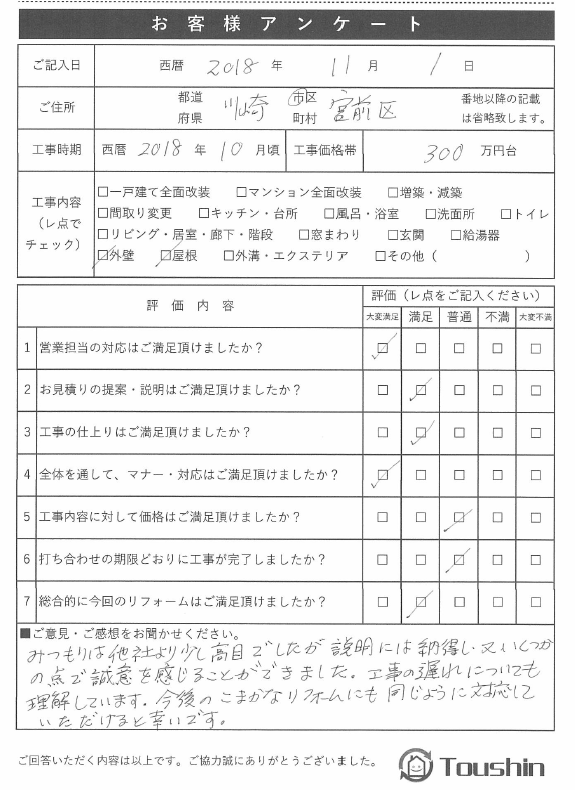 お客様アンケート
ご記入日 西暦 2018 年 11 月 1 日
ご住所 都道府県 川崎 市区町村 宮前区 番地以降の記載は省略致します。
工事時期 西暦 2018 年 10 月頃 工事価格帯 300 万円台
工事内容（レ点でチェック）
□一戸建て全面改装 □マンション全面改装 □増築・減築
□間取り変更 □キッチン・台所 □風呂・浴室 □洗面所 □トイレ
□リビング・居室・廊下・階段 □窓まわり □玄関 □給湯器
☑外壁 ☑屋根 □外溝・エクステリア □その他（ ）
評価内容 評価（レ点をご記入ください）
大変満足 満足 普通 不満 大変不満
1 営業担当の対応はご満足頂けましたか？ ☑ □ □ □ □
2 お見積りの提案・説明はご満足頂けましたか？ □ ☑ □ □ □
3 工事の仕上りはご満足頂けましたか？ □ ☑ □ □ □
4 全体を通して、マナー・対応はご満足頂けましたか？ ☑ □ □ □ □
5 工事内容に対して価格はご満足頂けましたか？ □ □ ☑ □ □
6 打ち合わせの期限どおりに工事が完了しましたか？ □ □ ☑ □ □
7 総合的に今回のリフォームはご満足頂けましたか？ □ ☑ □ □ □
■ご意見・ご感想をお聞かせください。
みつもりは他社より少し高目でしたが説明には納得し又いくつか
の点で誠意を感じることができました。工事の遅れについても
理解しています。今後のこまかなリフォームにも同じように対応して
いただけると幸いです。
ご回答いただく内容は以上です。ご協力誠にありがとうございました。
Toushin